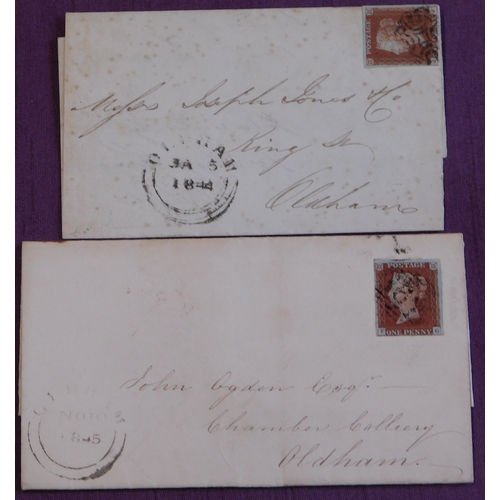 POSTAGE
Messrs Joseph Jones & Co
King St
Oldham
OLDHAM
JA 5
184
POSTAGE
ONE PENNY
John Ogden Esqr.
Chamber Colliery
Oldham.
1845